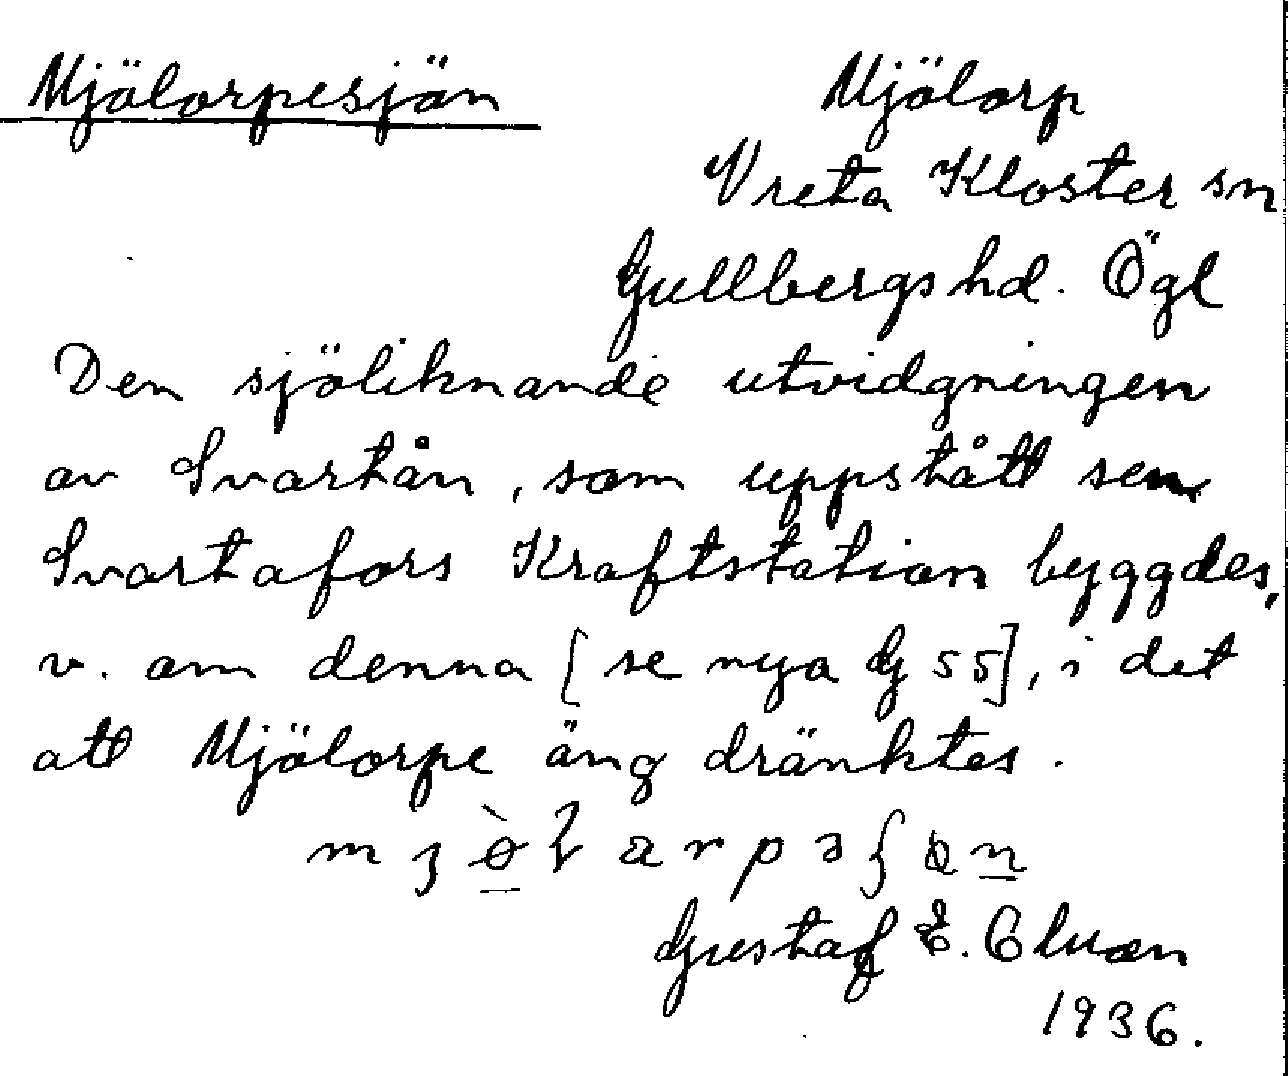 Mjölorpesjön Mjölorp
Vreta Kloster sn
Gullbergs hd. Ögl
Den sjöliknande utvidgningen
av Svartån, som uppstått sen
Svartafors Kraftstation byggdes,
v. om denna [se nya G 55], i det
att Mjölorpe äng dränktes.
Gustaf E.
1936.